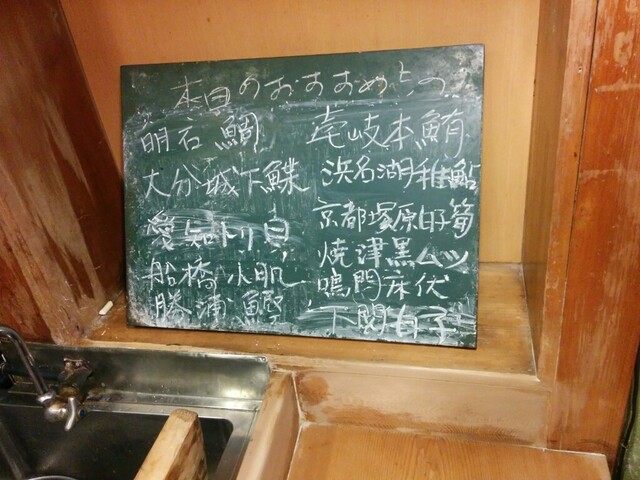 本日のおすすめもの
明石鯛
大分城下鰈
愛知トリ貝
船橋小肌
勝浦鰹
壱岐本鮪
浜名湖稚鮎
京都塚原白子筍
焼津黒ムツ
鳴門床伏
下関白子